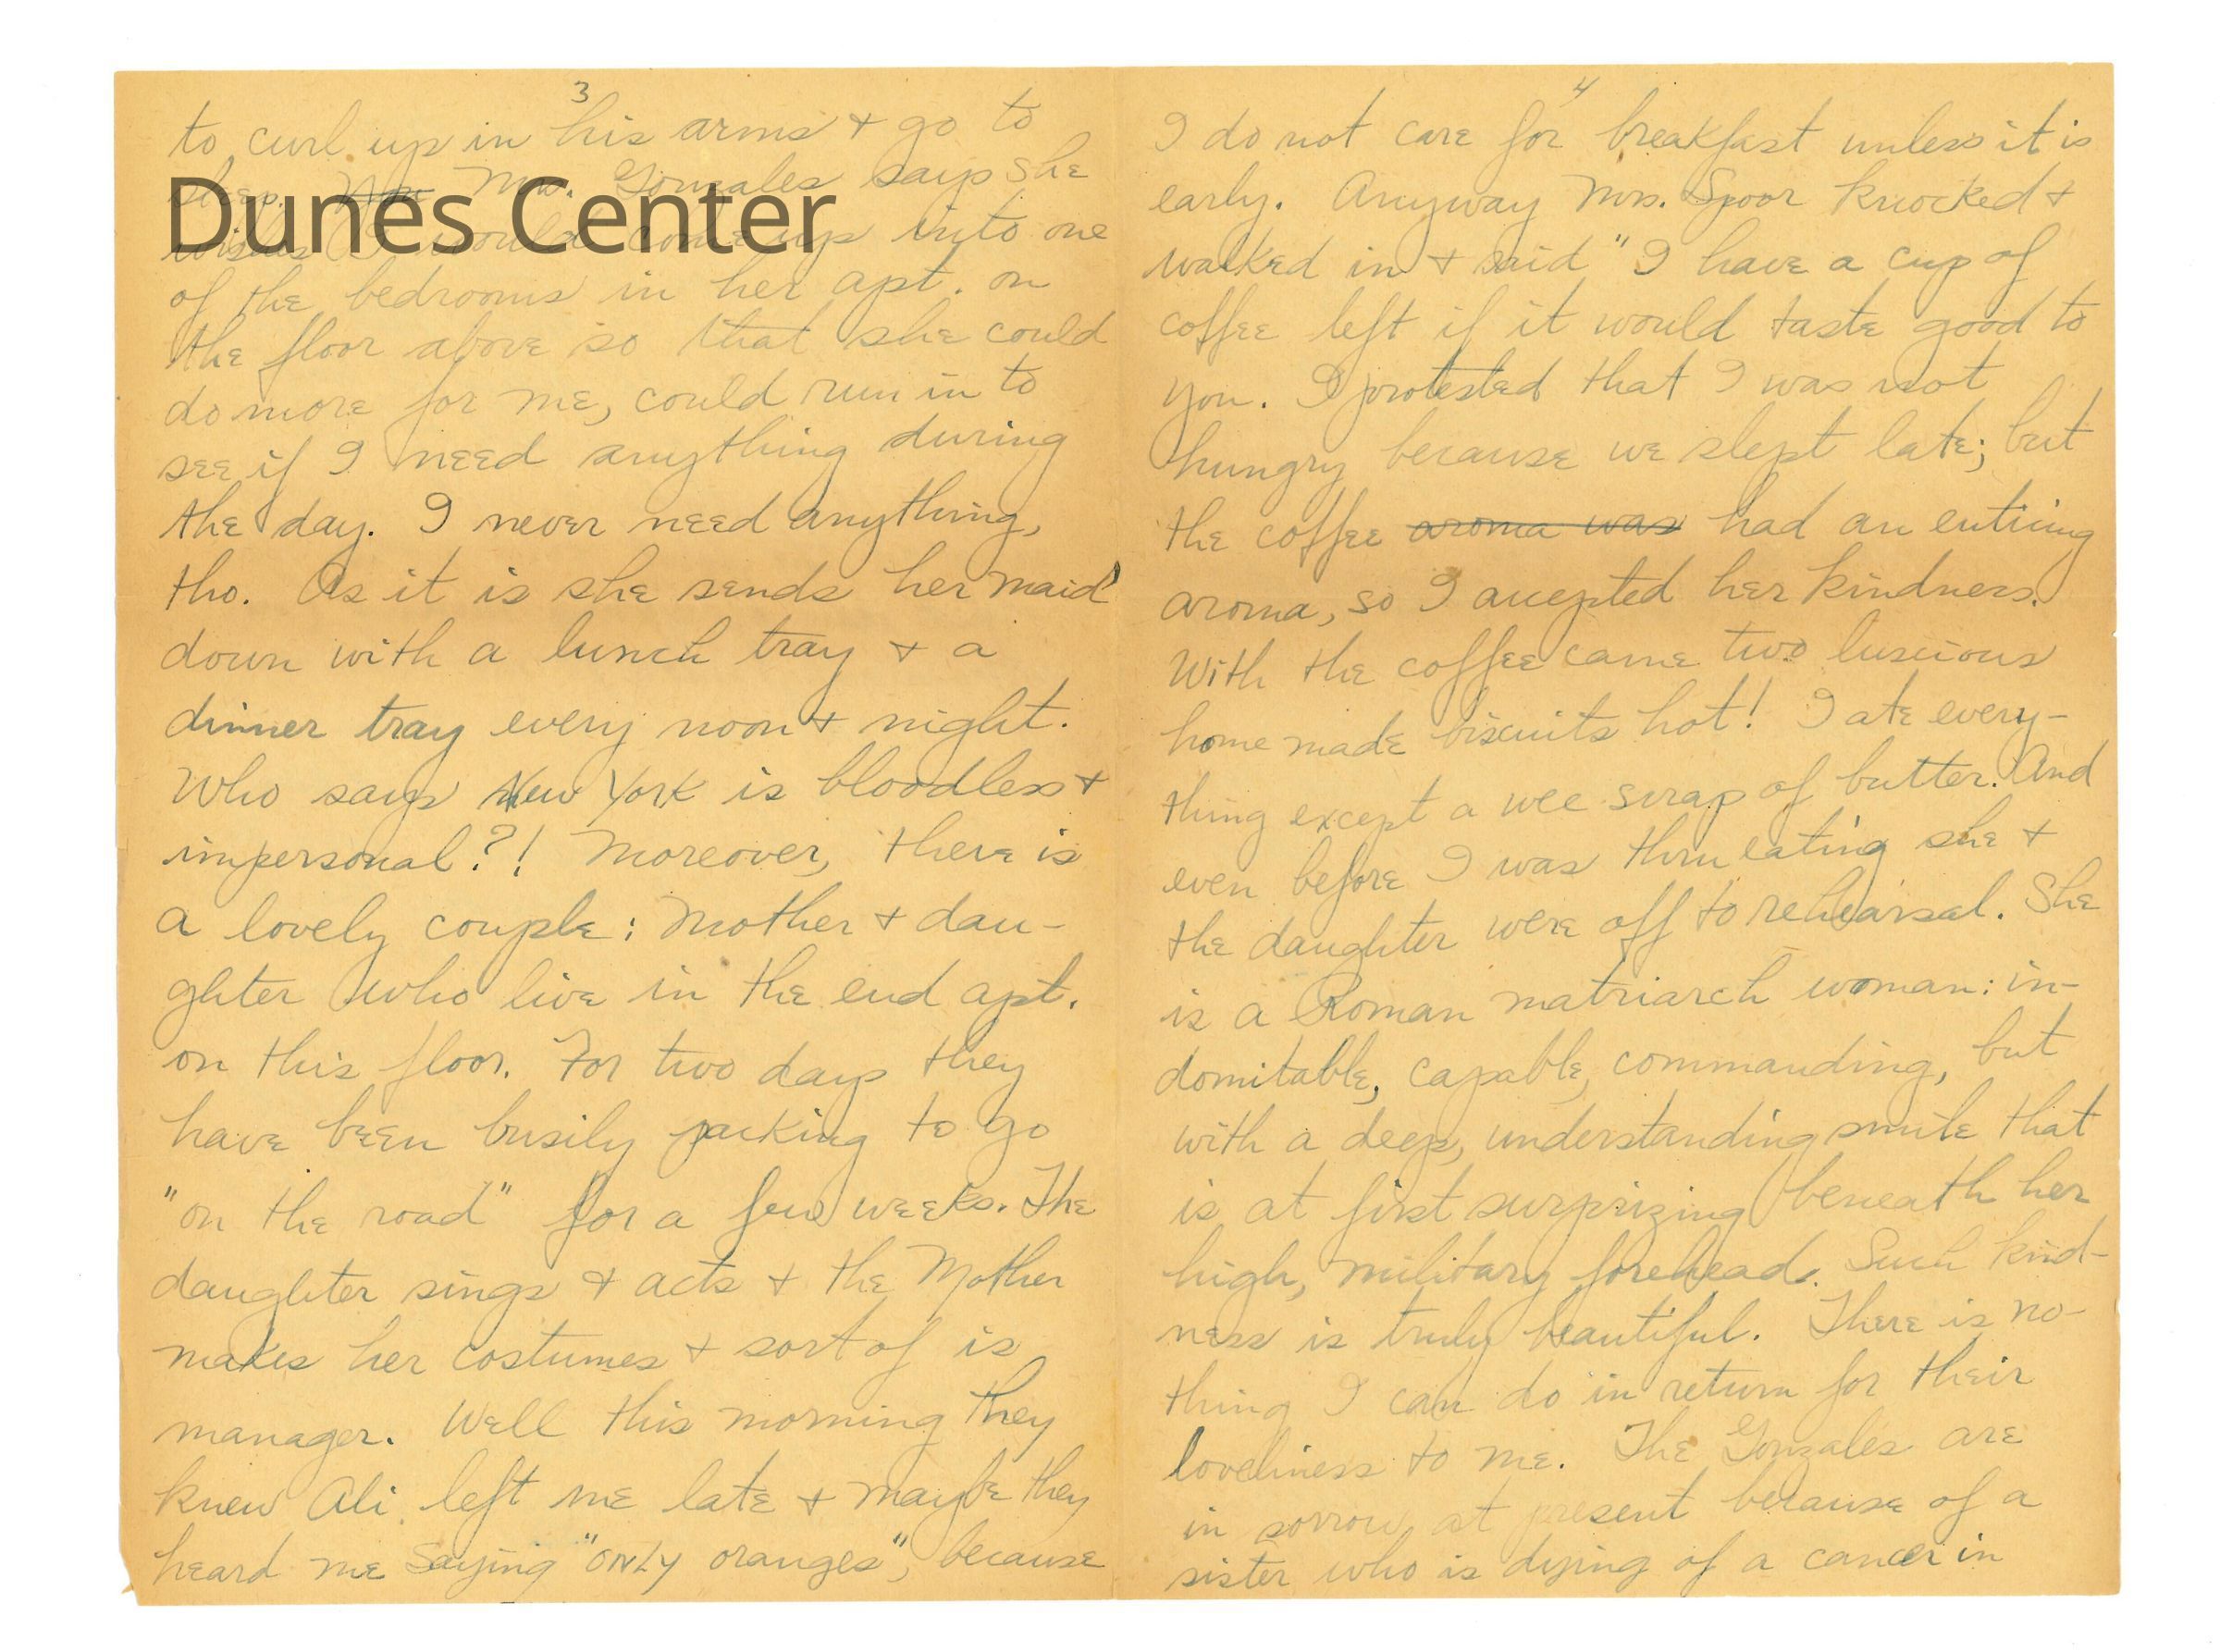 3
to curl up in his arms + go to
sleep. Now Mrs. Gonzales says she
Dunes Center
wishes I would come up into one
of the bedrooms in her apt. on
the floor above so that she could
do more for me, could run in to
see if I need anything during
the day. I never need anything,
tho. As it is she sends her maid
down with a lunch tray + a
dinner tray every noon + night.
Who says New York is bloodless +
impersonal?! Moreover, there is
a lovely couple: Mother + dau-
ghter who live in the end apt.
on this floor. For two days they
have been busily packing to go
"on the road" for a few weeks. The
daughter sings + acts + the Mother
makes her costumes + sort of is
manager. Well this morning they
knew Ali left me late + maybe they
heard me saying "ONLY oranges", because
4
I do not care for breakfast unless it is
early. Anyway Mrs. Spoor knocked +
walked in + said "I have a cup of
coffee left if it would taste good to
you. I protested that I was not
hungry because we slept late; but
the coffee aroma was had an enticing
aroma, so I accepted her kindness.
With the coffee came two luscious
home made biscuits hot! I ate every-
thing except a wee scrap of butter. And
even before I was thru eating she +
the daughter were off to rehearsal. She
is a Roman matriarch woman: in-
domitable, capable, commanding, but
with a deep, understanding smile that
is at first surprizing beneath her
high, military forehead. Such kind-
ness is truly beautiful. There is no-
thing I can do in return for their
loveliness to me. The Gonzales are
in sorrow at present because of a
sister who is dying of a cancer in